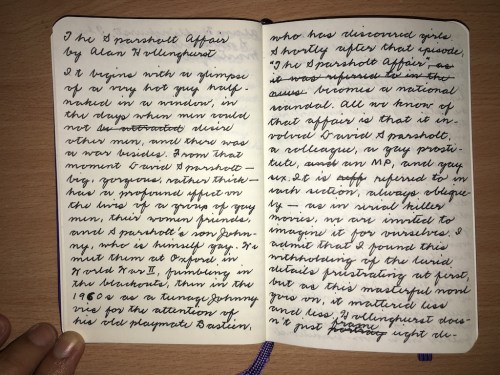 The Sparsholt Affair
by Alan Hollinghurst
It begins with a glimpse
of a very hot guy half-
naked in a window, in
the days when men could
not be attracted desire
other men, and there was
a war besides. From that
moment David Sparsholt —
big, gorgeous, rather thick —
has a profound effect on
the lives of a group of gay
men, their women friends,
and Sparsholt's son John-
ny, who is himself gay. We
meet them at Oxford in
World War II, fumbling in
the blackouts, then in the
1960s as a teenage Johnny
vies for the attention of
his old playmate Bastien,
who has discovered girls.
Shortly after that episode,
"The Sparsholt Affair", as
it was referred to in the
becomes a national
scandal. All we know of
that affair is that it in-
volved David Sparsholt,
a colleague, a gay prosti-
tute, and an MP, and gay
sex. It is referred to in
each section, always oblique-
ly — as in serial killer
movies, we are invited to
imagine it for ourselves. I
admit that I found this
withholding of the lurid
details frustrating at first,
but as this masterful novel
goes on, it mattered less
and less. Hollinghurst does-
n't just portray frame eight de-